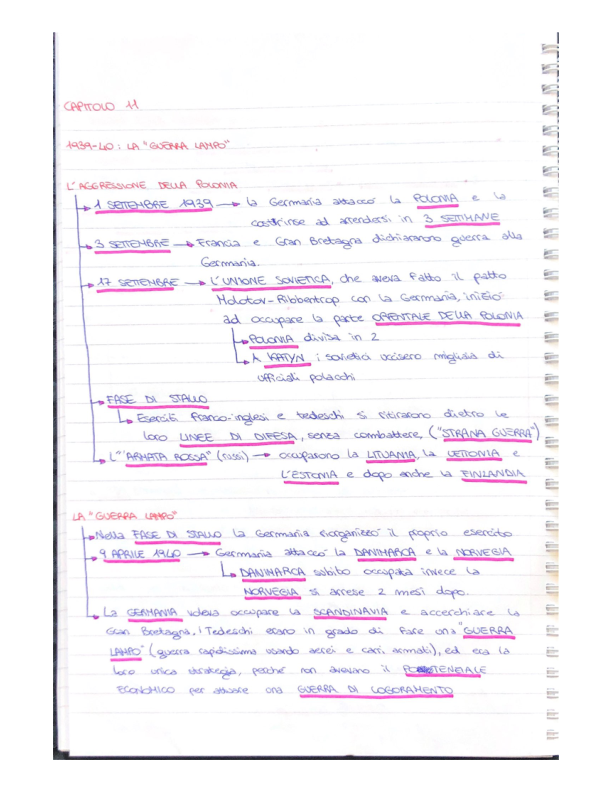 CAPITOLO 11
1939-40: LA "GUERRA LAMPO"
L'AGGRESSIONE DELLA POLONIA
1 SETTEMBRE 1939 → la Germania attaccò la POLONIA e la
costrinse ad arrendersi in 3 SETTIMANE
3 SETTEMBRE → Francia e Gran Bretagna dichiararono guerra alla
Germania.
17 SETTEMBRE → L'UNIONE SOVIETICA, che aveva fatto il patto
Molotov-Ribbentrop con la Germania, iniziò
ad occupare la parte ORIENTALE DELLA POLONIA
POLONIA divisa in 2
A KATYN i sovietici uccisero migliaia di
ufficiali polacchi
FASE DI STALLO
Eserciti franco-inglesi e tedeschi si ritirarono dietro le
loro LINEE DI DIFESA, senza combattere, ("STRANA GUERRA")
L'"ARMATA ROSSA" (russi) → occuparono la LITUANIA, la LETTONIA e
L'ESTONIA e dopo anche la FINLANDIA
LA "GUERRA LAMPO"
Nella FASE DI STALLO la Germania riorganizzò il proprio esercito
9 APRILE 1940 → Germania attaccò la DANIMARCA e la NORVEGIA
DANIMARCA subito occupata invece la
NORVEGIA si arrese 2 mesi dopo.
La GERMANIA voleva occupare la SCANDINAVIA e accerchiare la
Gran Bretagna, i Tedeschi erano in grado di fare una "GUERRA
LAMPO" (guerra rapidissima usando aerei e carri armati), ed era la
loro unica strategia, perché non avevano il POTENZIALE
ECONOMICO per attuare una GUERRA DI LOGORAMENTO